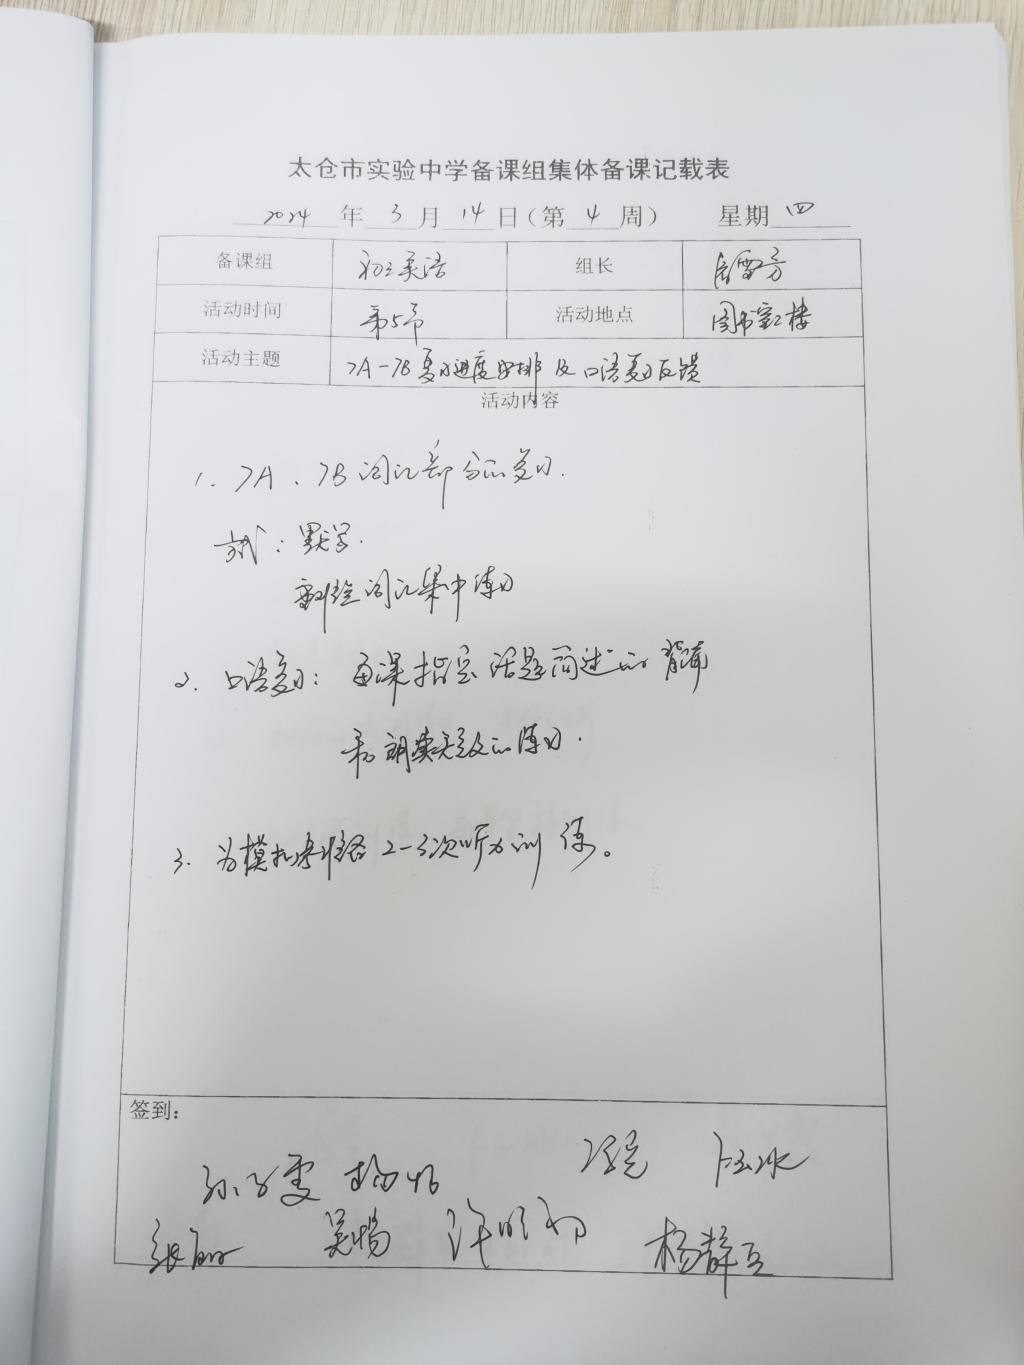 太仓市实验中学备课组集体备课记载表
2024年3月14日(第4周) 星期四
备课组 初三英语 组长
活动时间 第5节 活动地点 图书室2楼
活动主题 7A-7B复习进度安排及口语复习反馈
活动内容
1. 7A、7B词汇部分的复习.
方式:默写.
词汇集中练习
2. 口语复习:每课指定话题简述的背诵
和朗读短文的练习.
3. 为模拟考准备2-3次听力训练。
签到:
孙子雯 杨怡
张丽 吴畅 许明初 杨静亚